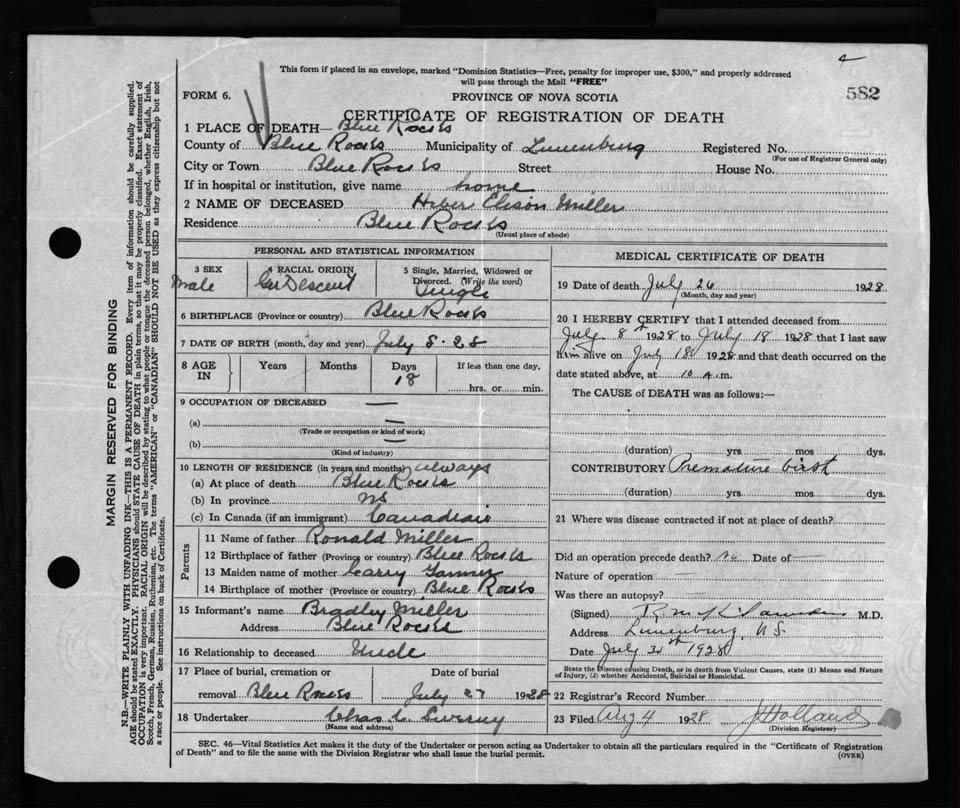 4
This form if placed in an envelope, marked "Dominion Statistics—Free, penalty for improper use, $300," and properly addressed
will pass through the Mail "FREE"
582
FORM 6.
PROVINCE OF NOVA SCOTIA
CERTIFICATE OF REGISTRATION OF DEATH
1 PLACE OF DEATH— Blue Rocks
County of Blue Rocks Municipality of Lunenburg Registered No.
(For use of Registrar General only)
City or Town Blue Rocks Street House No.
If in hospital or institution, give name home
2 NAME OF DECEASED Miller
Residence Blue Rocks
(Usual place of abode)
PERSONAL AND STATISTICAL INFORMATION
3 SEX 4 RACIAL ORIGIN 5 Single, Married, Widowed or
Divorced. (Write the word)
Male Ger Descent Single
6 BIRTHPLACE (Province or country) Blue Rocks
7 DATE OF BIRTH (month, day and year) July 8 - 28
8 AGE IN Years Months Days If less than one day,
18 hrs. or min.
9 OCCUPATION OF DECEASED —
(a) —
(Trade or occupation or kind of work)
(b) —
(Kind of industry)
10 LENGTH OF RESIDENCE (in years and months) always
(a) At place of death Blue Rocks
(b) In province NS
(c) In Canada (if an immigrant) Canadian
Parents
11 Name of father Ronald Miller
12 Birthplace of father (Province or country) Blue Rocks
13 Maiden name of mother
14 Birthplace of mother (Province or country) Blue Rocks
15 Informant's name Bradley Miller
Address Blue Rocks
16 Relationship to deceased Uncle
17 Place of burial, cremation or Date of burial
removal Blue Rocks July 27 1928
18 Undertaker Chas L.
(Name and address)
MEDICAL CERTIFICATE OF DEATH
19 Date of death July 26 1928
(Month, day and year)
20 I HEREBY CERTIFY that I attended deceased from
July 8th 1928 to July 18 1928 that I last saw
him alive on July 18 1928 and that death occurred on
date stated above, at 10 a.m.
The CAUSE of DEATH was as follows:—
(duration) yrs mos dys.
CONTRIBUTORY Premature birth
(duration) yrs mos dys.
21 Where was disease contracted if not at place of death?
Did an operation precede death? No Date of —
Nature of operation —
Was there an autopsy?
(Signed) M.D.
Address Lunenburg, N.S.
Date July 1928
State the Disease causing Death, or in death from Violent Causes, state (1) Means and Nature
of Injury, (2) whether Accidental, Suicidal or Homicidal.
22 Registrar's Record Number
23 Filed Aug 4 1928 J Holland
(Division Registrar)
SEC. 46—Vital Statistics Act makes it the duty of the Undertaker or person acting as Undertaker to obtain all the particulars required in the "Certificate of Registration
of Death" and to file the same with the Division Registrar who shall issue the burial permit. (OVER)
MARGIN RESERVED FOR BINDING
N.B.—WRITE PLAINLY WITH UNFADING INK—THIS IS A PERMANENT RECORD. Every item of information should be carefully supplied.
AGE should be stated EXACTLY. PHYSICIANS should STATE CAUSE OF DEATH in plain terms, so that it may be properly classified. Exact statement of
OCCUPATION is very important. RACIAL ORIGIN will be described by stating to what people or tongue the deceased person belonged, whether English, Irish,
Scotch, French, German, Russian, Ruthenian, etc. The terms "AMERICAN" or "CANADIAN" SHOULD NOT BE USED as they express citizenship but not
a race or people. See instructions on back of Certificate.